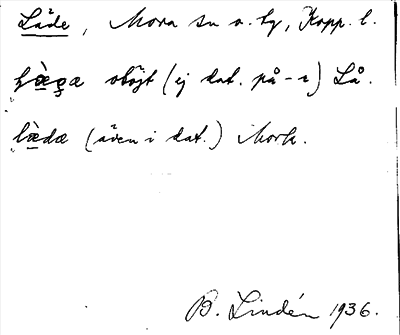 Låde, Mora sn o. by, Kopp. l.
oböjt (ej dat. på -i) Lå.
lædæ (även i dat.) Mork.
B. Lindén 1936.